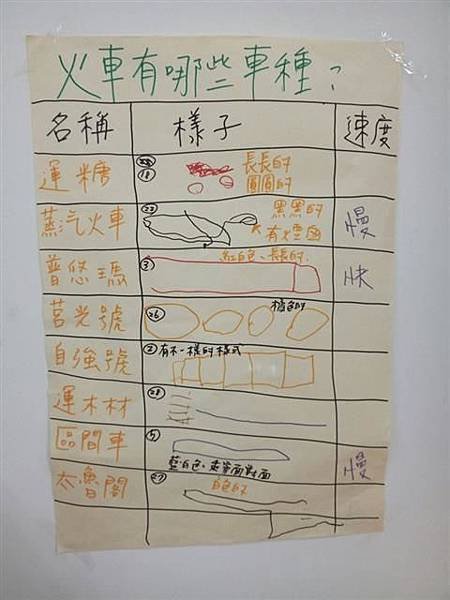 火車有哪些車種？
名稱 樣子 速度
運糖 ⑱ 長長的
圓圓的
蒸汽火車 ㉒ 黑黑的 慢
有煙囪
普悠瑪 ③ 紅白色、長長的 快
莒光號 ㉖ 橘色的
自強號 ② 有不一樣的樣式
運木材 ㉘
區間車 ⑤ 慢
藍白色、面對面
太魯閣 ㉗ 白色的